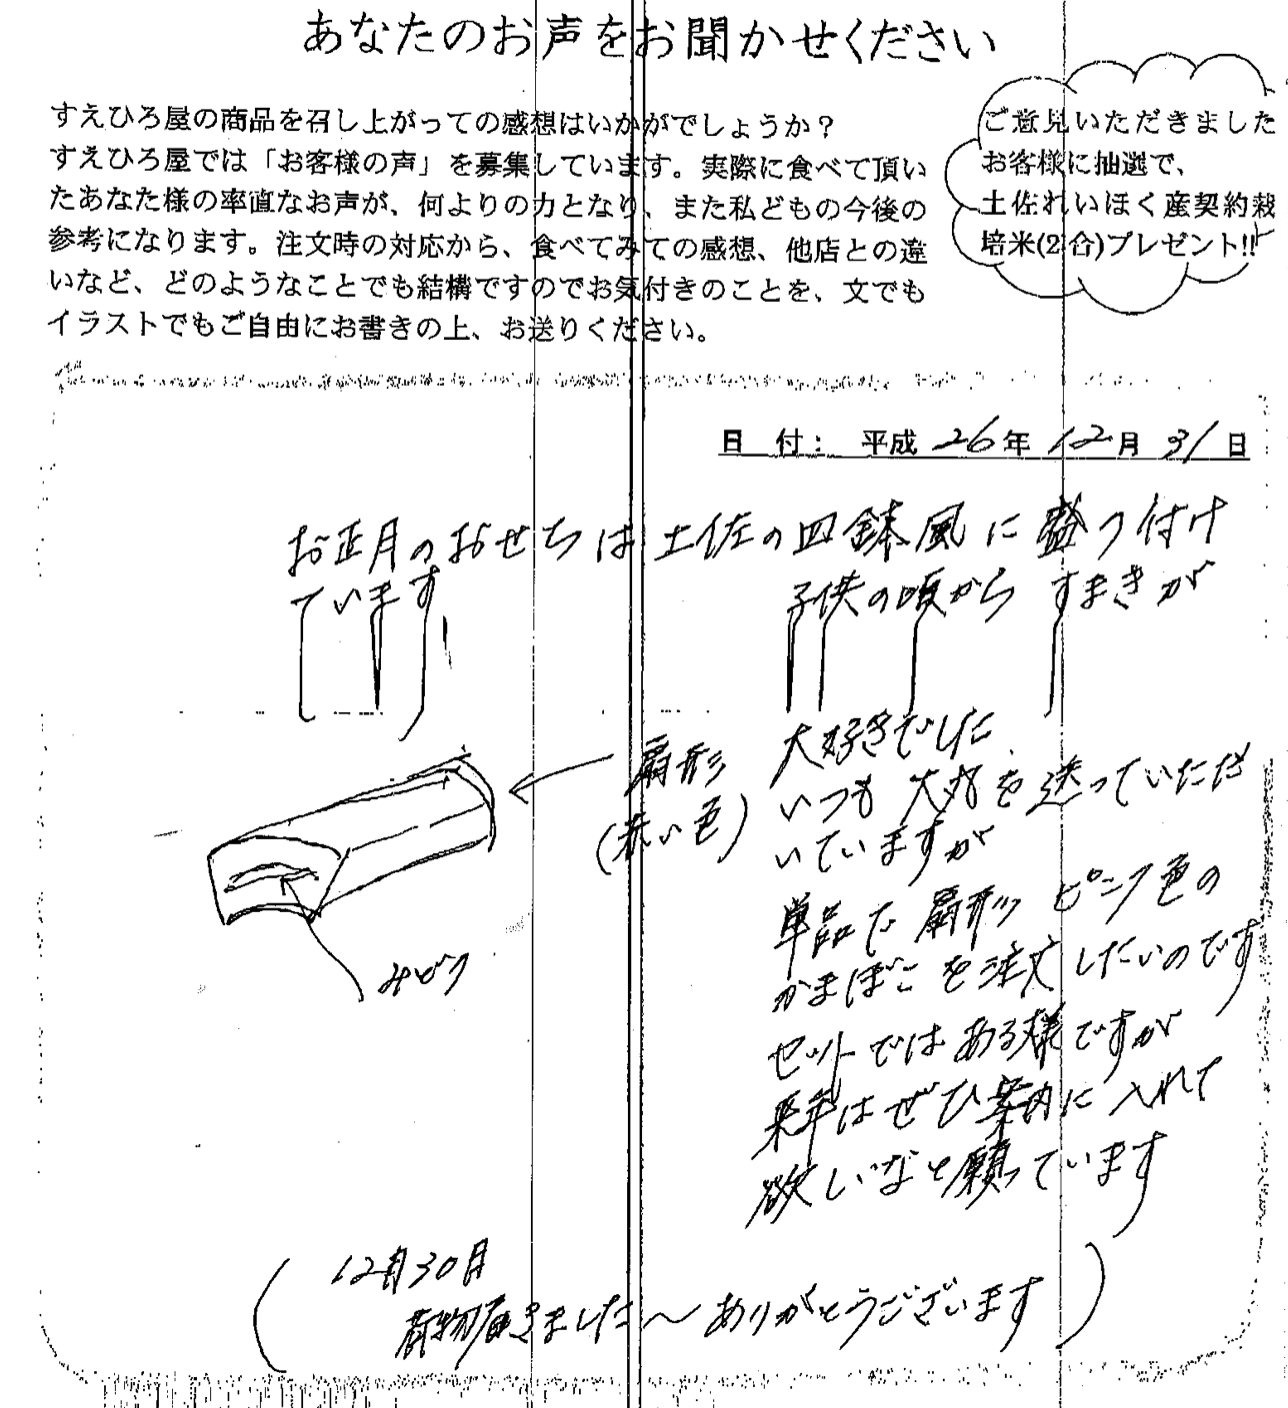 あなたのお声をお聞かせください
すえひろ屋の商品を召し上がっての感想はいかがでしょうか？
すえひろ屋では「お客様の声」を募集しています。実際に食べて頂い
たあなた様の率直なお声が、何よりの力となり、また私どもの今後の
参考になります。注文時の対応から、食べてみての感想、他店との違
いなど、どのようなことでも結構ですのでお気付きのことを、文でも
イラストでもご自由にお書きの上、お送りください。
ご意見いただきました
お客様に抽選で、
土佐れいほく産契約栽
培米(2合)プレゼント!!
日 付： 平成 26年 12月 31日
お正月のおせちは土佐の皿鉢風に盛つ付け
ています
子供の頃から すまきが
大好きでした
いつも 大丸を送っていただ
いていますが
単品で 扇形 ピンク色の
かまぼこを注文したいのです
セットではある様ですが
来年はぜひ案内に入れて
欲しいなと願っています
扇形
(赤い色)
みぞ
(12月30日
荷物届きました〜ありがとうございます)